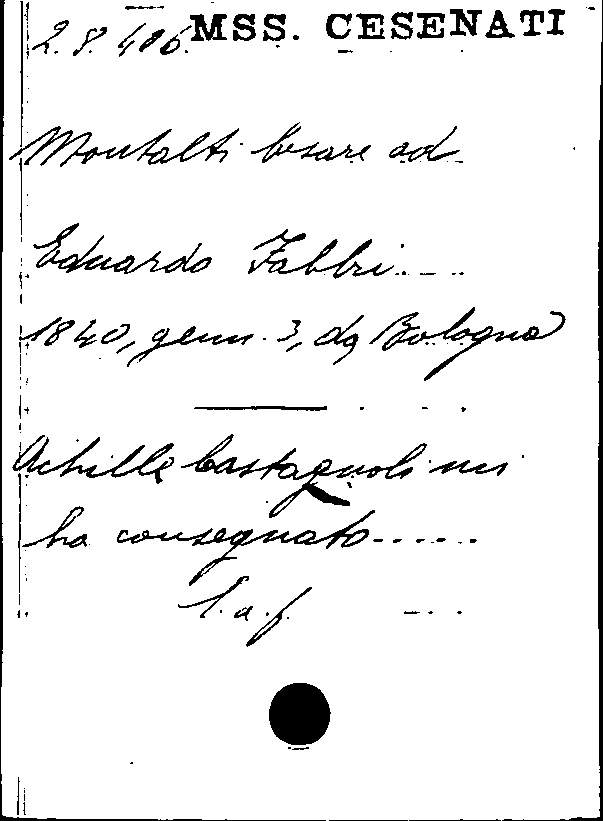 2.8.406 MSS. CESENATI
Montalti Cesare ad
Eduardo Fabbri....
1840, genn. 3, da Bologna
Achille Castagnoli mi
ha consegnato......
l. a. f.